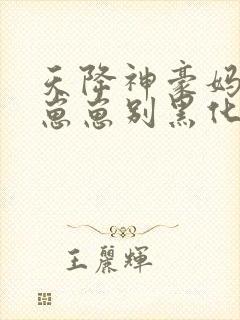 天降神豪妈
崽崽别黑化
王麗輝